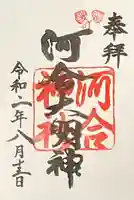 奉拝
河
明神
河合
神社
令和二年八月
日